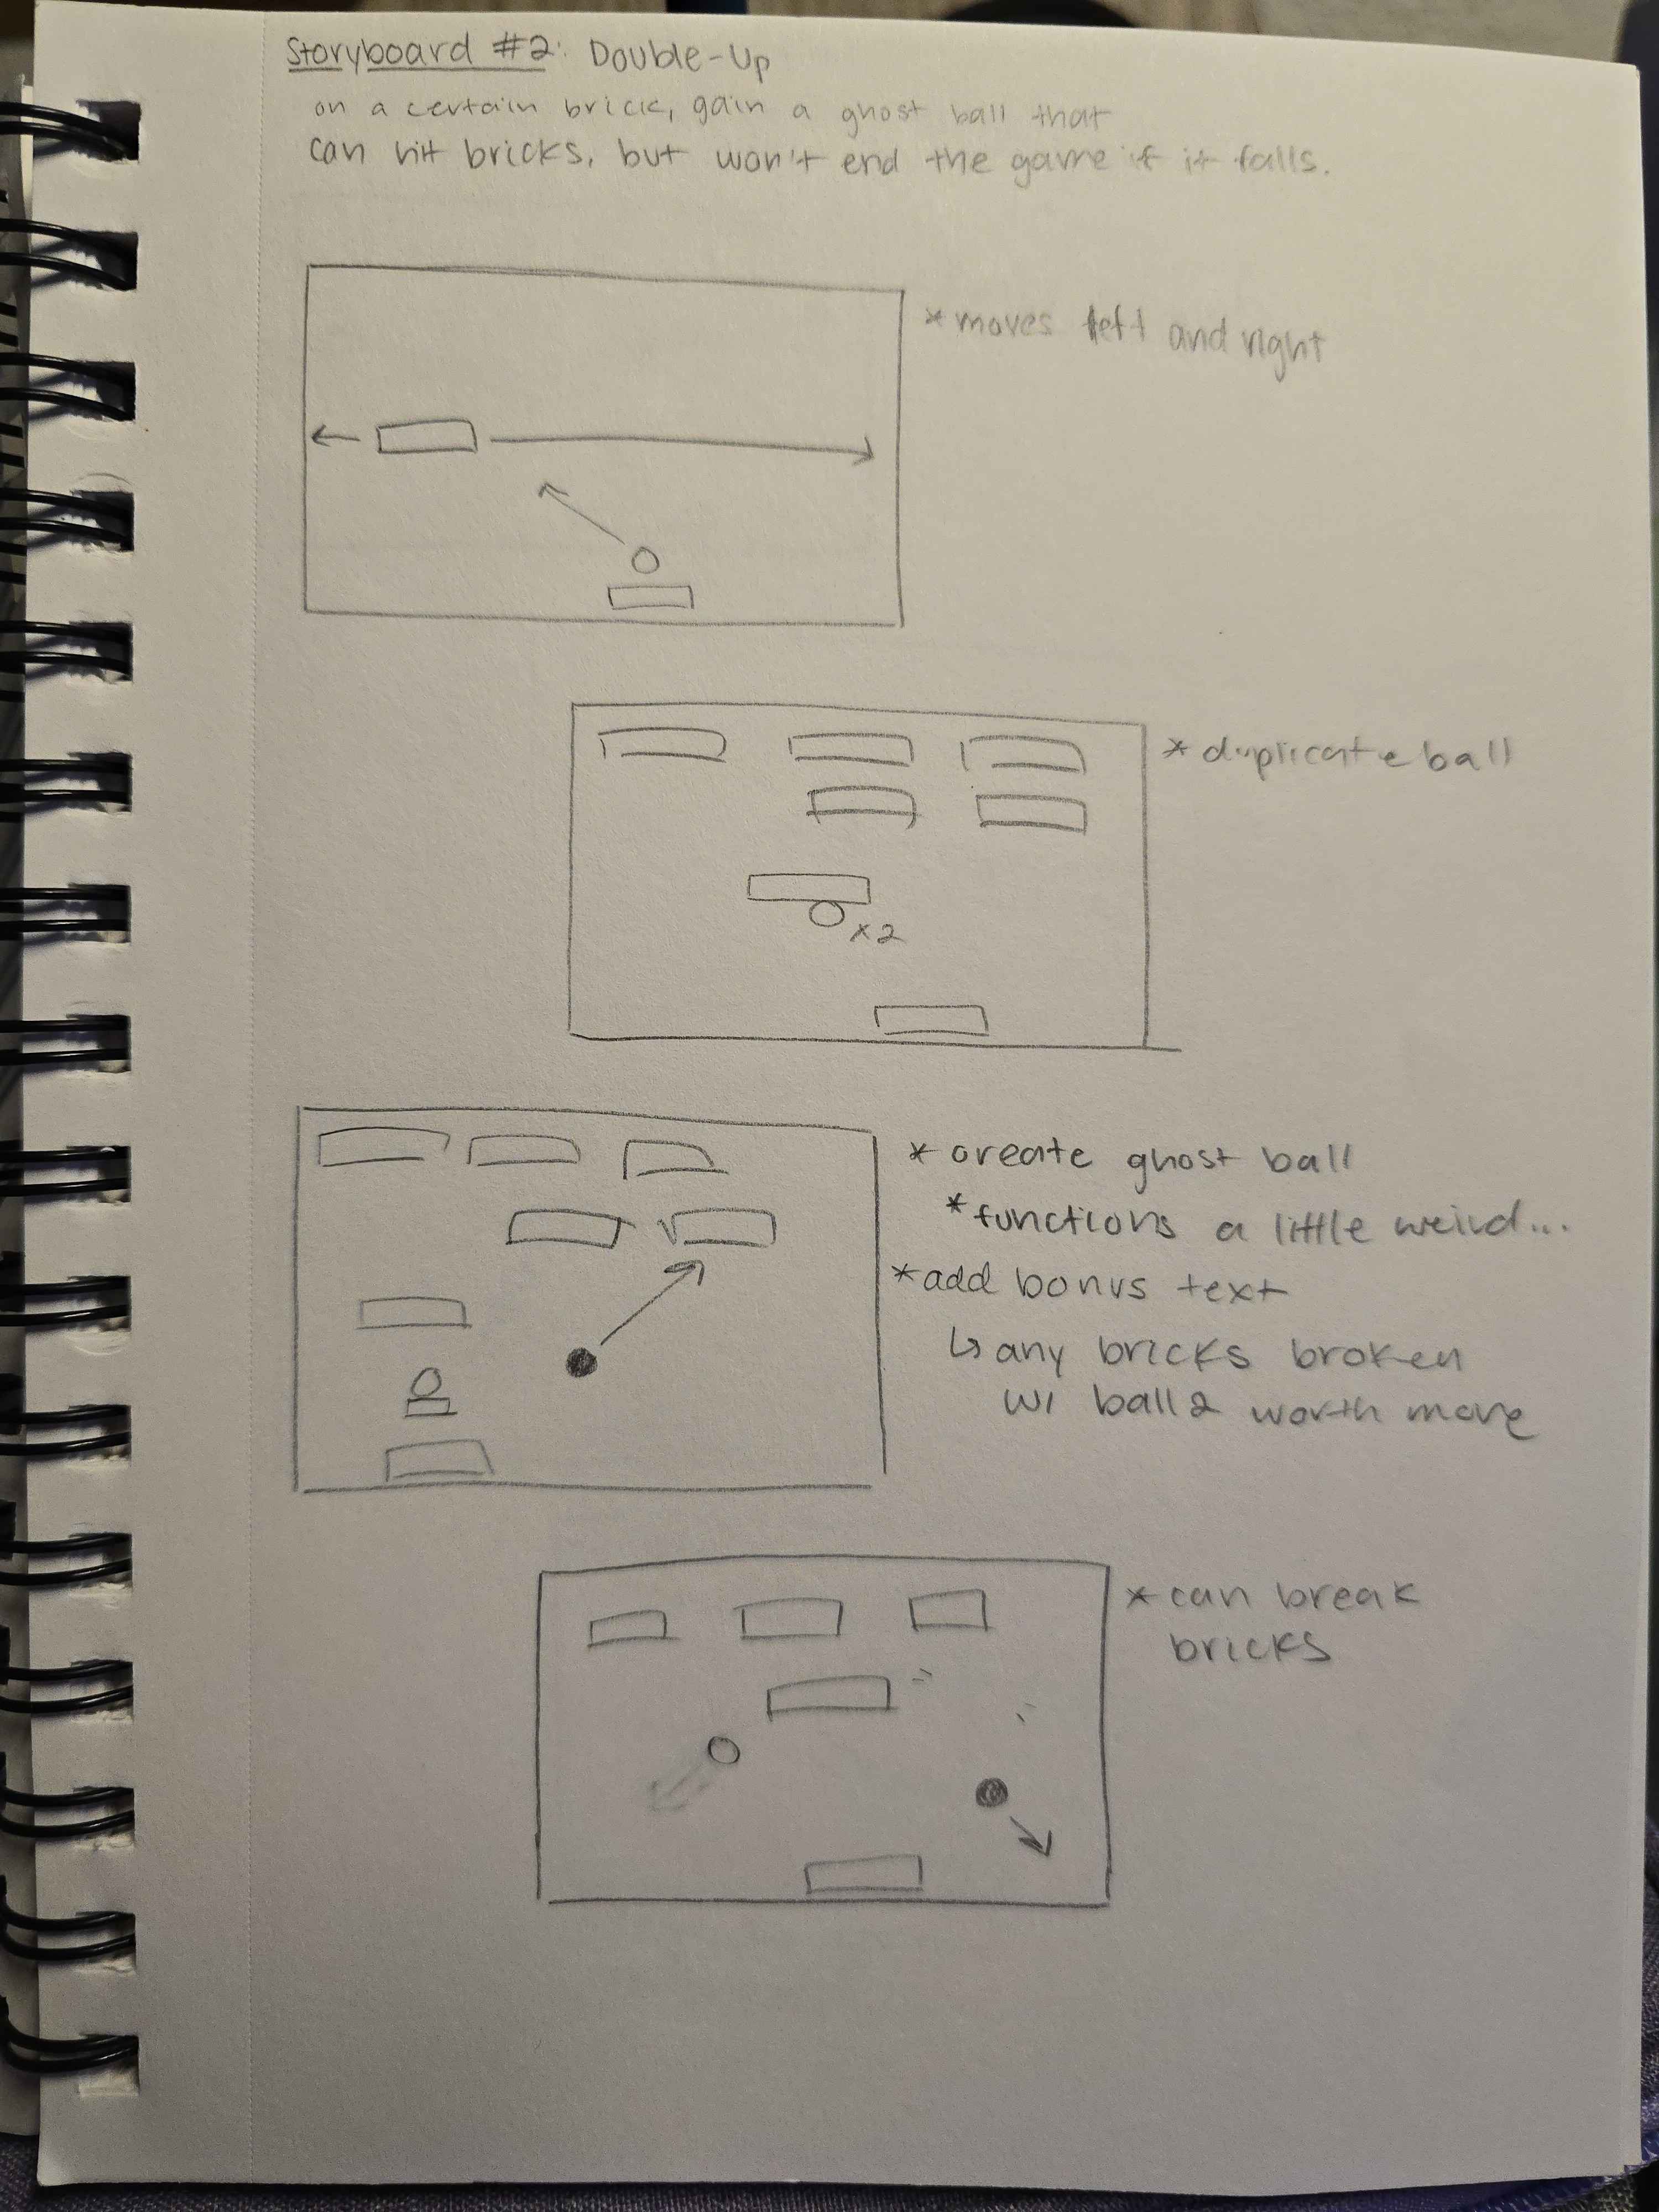 Storyboard #2: Double-Up
on a certain brick, gain a ghost ball that
can hit bricks, but won't end the game if it falls.
* moves left and right
* duplicate ball
x2
* create ghost ball
* functions a little weird...
* add bonus text
↳ any bricks broken
w/ ball 2 worth more
* can break
bricks